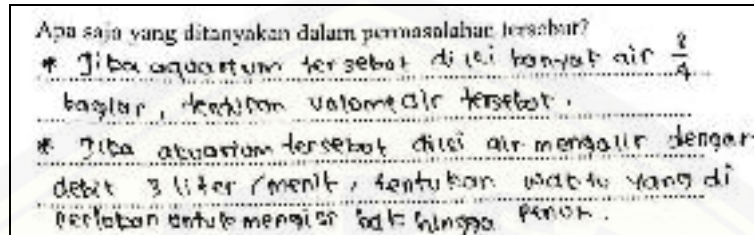 Apa saja yang ditanyakan dalam permasalahan tersebut?
* Jika aquarium tersebut di isi banyak air
bagian, tentukan volume air tersebut.
* Jika akuarium tersebut diisi air mengalir dengan
debit 3 liter/menit, tentukan waktu yang di
perlukan untuk mengisi bak hingga penuh.